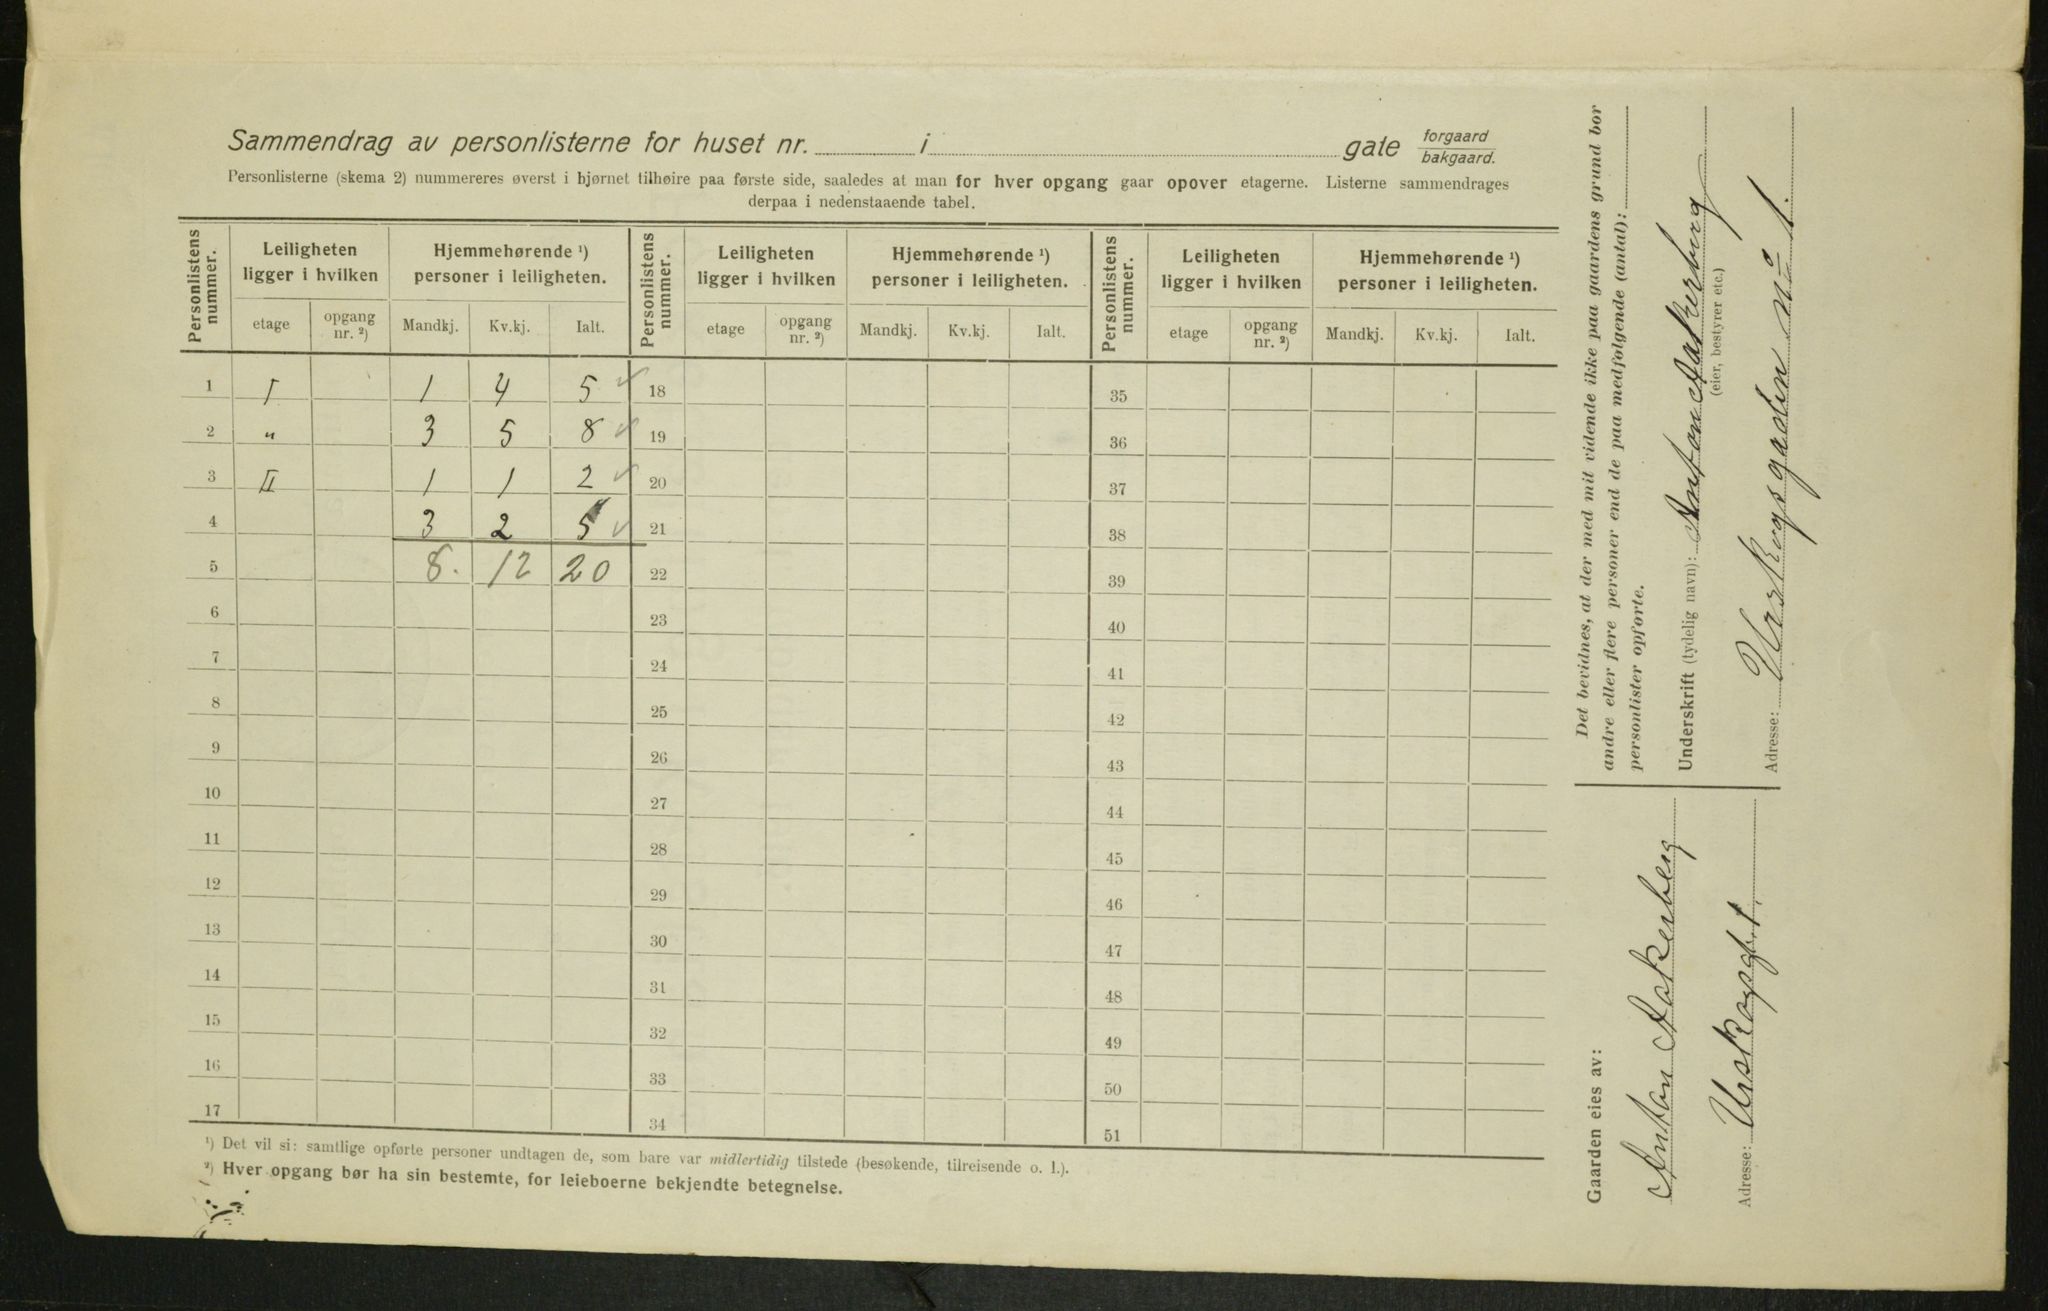 Sammendrag av personlisterne for huset nr. i gate forgaard bakgaard.
Personlisterne (skema 2) nummereres øverst i hjørnet tilhøire paa første side, saaledes at man for hver opgang gaar opover etagerne. Listerne sammendrages
derpaa i nedenstaaende tabel.
Personlistens nummer. Leiligheten ligger i hvilken Hjemmehørende ¹) personer i leiligheten. Personlistens nummer. Leiligheten ligger i hvilken Hjemmehørende ¹) personer i leiligheten. Personlistens nummer. Leiligheten ligger i hvilken Hjemmehørende ¹) personer i leiligheten.
etage opgang nr. ²) Mandkj. Kv.kj. Ialt. etage opgang nr. ²) Mandkj. Kv.kj. Ialt. etage opgang nr. ²) Mandkj. Kv.kj. Ialt.
1 I 1 4 5 ✓ 18 35
2 „ 3 5 8 ✓ 19 36
3 II 1 1 2 ✓ 20 37
4 3 2 5 ✓ 21 38
5 8. 12 20 22 39
6 23 40
7 24 41
8 25 42
9 26 43
10 27 44
11 28 45
12 29 46
13 30 47
14 31 48
15 32 49
16 33 50
17 34 51
¹) Det vil si: samtlige opførte personer undtagen de, som bare var midlertidig tilstede (besøkende, tilreisende o. l.).
²) Hver opgang bør ha sin bestemte, for leieboerne bekjendte betegnelse.
Det bevidnes, at der med mit vidende ikke paa gaardens grund bor
andre eller flere personer end de paa medfølgende (antal):
personlister opførte.
Underskrift (tydelig navn): Anton Aakerberg
(eier, bestyrer etc.)
Adresse: Urskogsgaden no 1.
Gaarden eies av:
Anton Aakerberg
Adresse: Urskogsgt. 1.